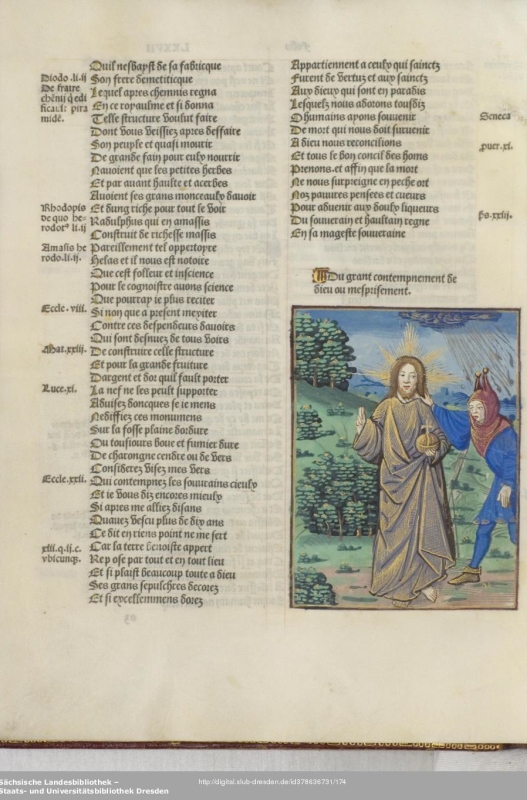 Quil nesbayst de sa fabricque
Diodo .li.ij
Son frere demeticque
De fratre
Lequel apres chemnis regna
chēnij q̄ edi
En ce royaulme et si donna
ficauit pira
Telle structure voulut faire
midē.
Dont vous veissiez apres deffaire
Son peuple et quasi mourir
De grande fain pour eulx nourrir
Navoient que les petites herbes
Et par avant haultz et acerbes
Avoient ses grans monceaulx davoir
Rhodopis
Et dung riche pour tout le voir
de quo he
Radulphus qui en amassis
rodotꝰ li.ij
Construit de richesse massis
Amasis he
Pareillement tel oppertopre
rodo.li.ij.
Helas et il nous est notoire
Que cest folleur et inscience
Pour le cognoistre avons science
Que pourray ie plus reciter
Eccle. viii.
Si non que a present meviter
Contre ces despendeurs davoirs
Qui sont desnuez de tous voirs
Mat.xxiij.
De construire celle structure
Et pour la grande fruiture
Dargent et dor quil fault porter
Luce.xi.
La nef ne les peult supporter
Advisez doncques se ie mens
Nediffiez ces monumens
Sur la fosse plaine dordure
Ou tousiours boue et fumier dure
De charongne cendre ou de vers
Considerez visez mes vers
Eccle.xxii.
Qui contempnez les souverains cieulx
Et ie vous diz encores mieulx
Si apres me alliez disans
Quavez vescu plus de dix ans
Ce dit en riens point ne me sert
xiii.q.ij.c.
Car la terre benoiste appert
vbicunqꝫ.
Repose par tout et en tout lieu
Et si plaist beaucoup toute a dieu
Ses grans sepulchres decorez
Et si excellemmens dorez
Appartiennent a ceulx qui sainctz
Furent de vertuz et aux sainctz
Aux dieux qui sont en paradis
Lesquelz nous adorons tousdiz
O humains ayons souvenir
Seneca
De mort qui nous doit survenir
A dieu nous reconcilions
puer.xi.
Et tous le bon conseil des homs
Prenons.et affin que la mort
Ne nous surpreigne en peche ort
Noz pauvres pensees et cueurs
Pour advenir aux doulx liqueurs
ps.xxiij.
Du souverain et haultain regne
En sa mageste souveraine
Du grant contempnement de
dieu ou mesprisement.
Sächsische Landesbibliothek –
Staats- und Universitätsbibliothek Dresden
http://digital.slub-dresden.de/id378636731/174